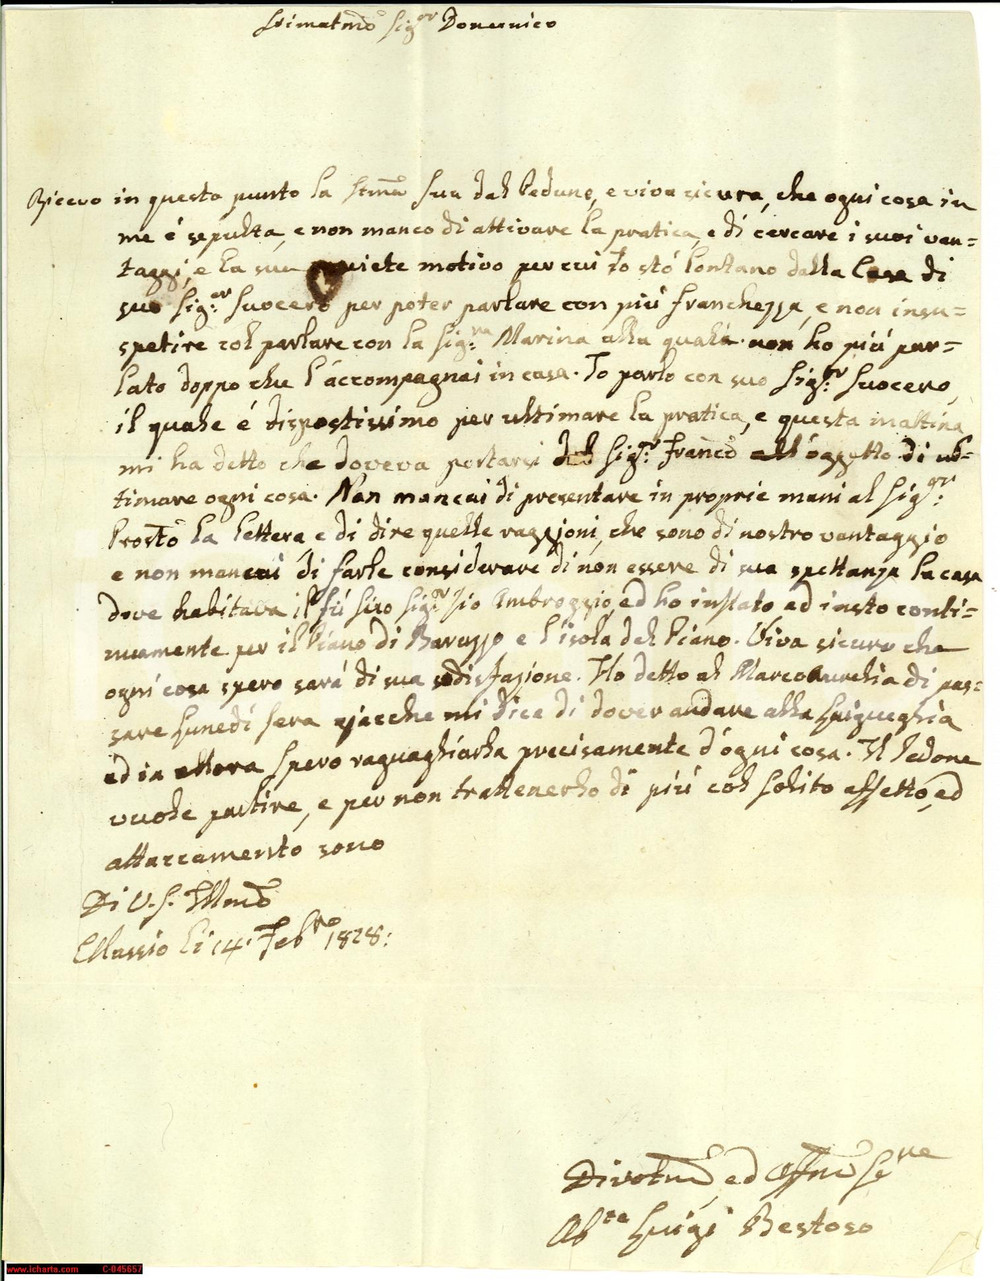 Stimatmo Sigor Domenico
Ricevo in questo punto la Stma Sua dal Pedone, e viva sicura, che ogni cosa in
me é sepulta, e non manco di attivare la pratica, e di cercare i suoi van=
taggi, e la sua quiete motivo per cui Io stó lontano dalla Casa di
suo Sigor Suocero per poter parlare con piú franchezza, e non insu=
spetire col parlare con la Sigra Marina alla quale non ho piú par=
lato doppo che l'accompagnai in casa. Io parlo con suo Sigor Suocero,
il quale é dispostissimo per ultimare la pratica, e questa mattina
mi ha detto che doveva portarsi dal Sigor Franco all'oggetto di ul=
timare ogni cosa. Non mancai di presentare in proprie mani al Sigor
Prosto la lettera e di dire quelle raggioni, che sono di nostro vantaggio
e non mancai di farle considerare di non essere di sua spettanza la casa
dove habitava il fú suo Sigor Zio Ambroggio, ed ho instato ed insto conti=
nuamente per il Piano di Baruzzo, e l'isola del Piano. Viva sicuro che
ogni cosa spero sará di sua sodisfazione. Ho detto al Marcoaurelia di pas=
sare lunedí sera giacche mi dice di dover andare alla Lagueglia
ed in allora spero raguagliarla precisamente d'ogni cosa. Il Pedone
vuole partire, e per non trattenerlo di piú col solito affetto, ed
attaccamento sono
Di V. S. Illma
Allassio li 14. Febro 1828:
Divotmo, ed Affmo Serve
Abte Luigi Bestoso
www.icharta.com C-045657